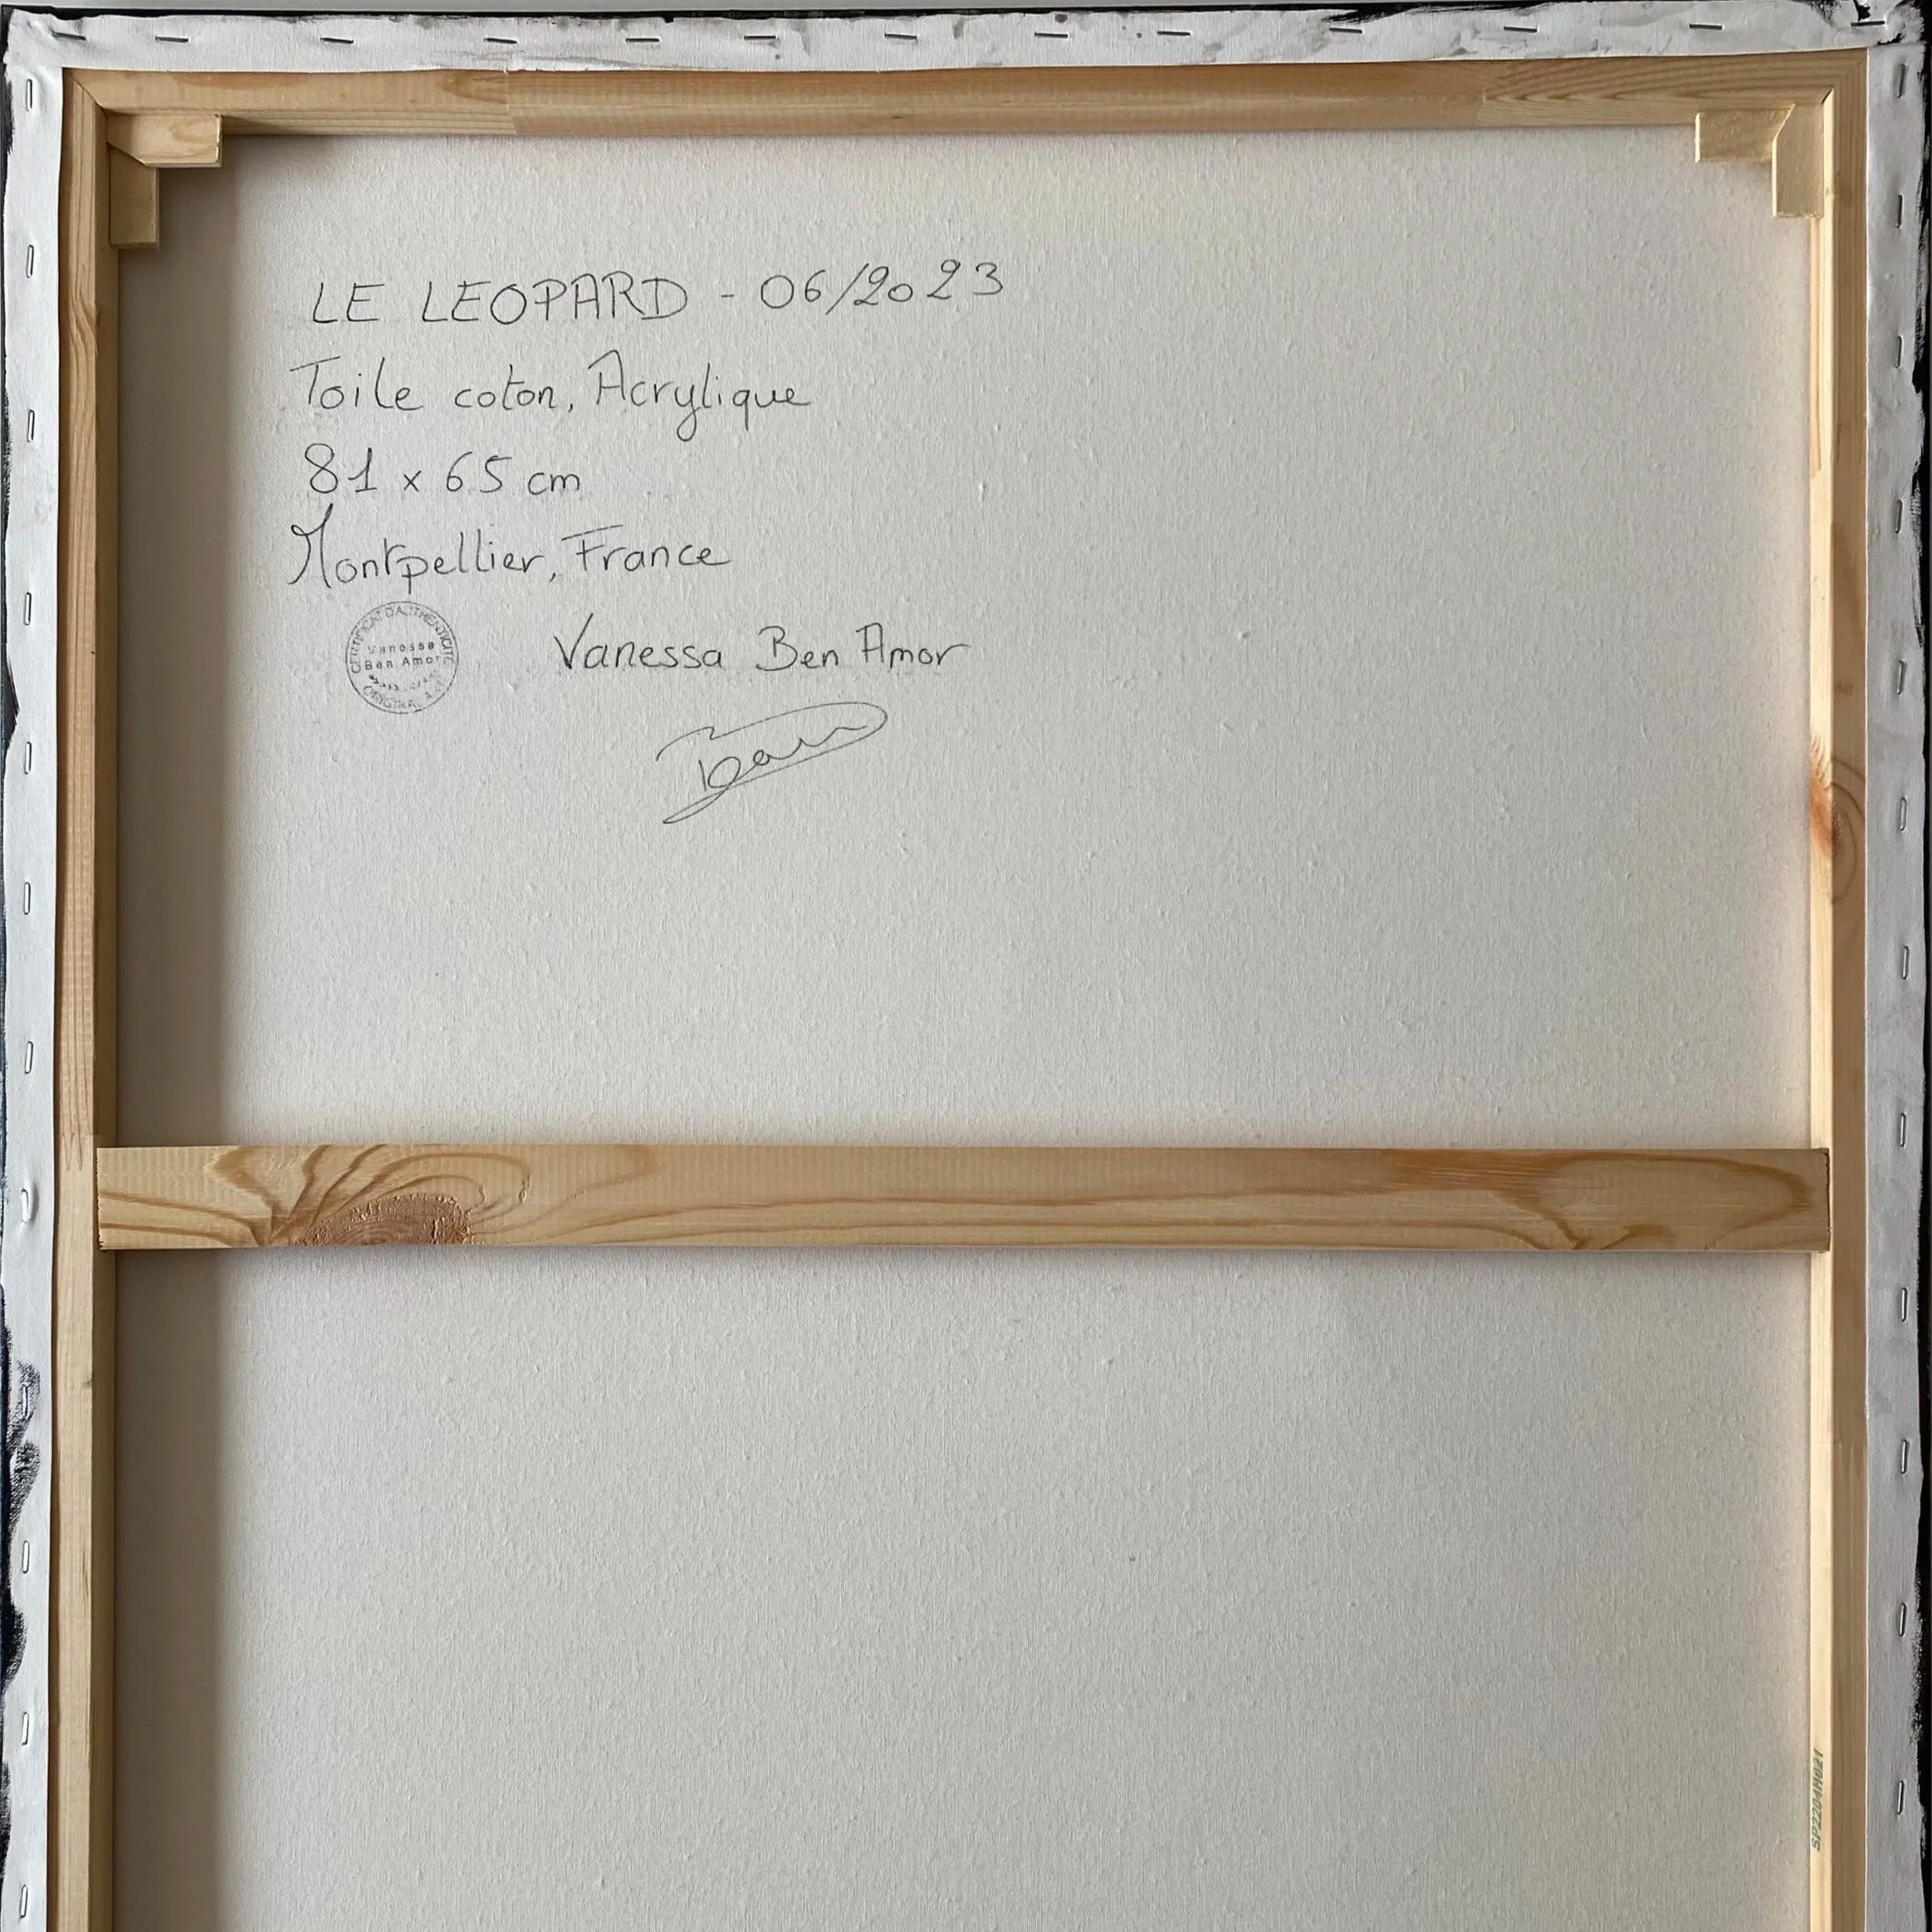 LE LEOPARD - 06/2023
Toile coton, Acrylique
81 x 65 cm
Montpellier, France
CERTIFICAT D'AUTHENTICITÉ
Vanessa
Ben Amor
Vanessa Ben Amor
SP2204M021